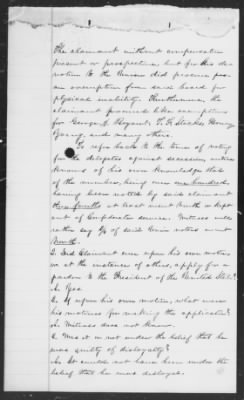 The claimant without compensation
present or prospective but for his de-
votion to the Union did procure for
an exemption from said board for
physical inability. Furthermore, the
claimant procured like exemptions
for George J.
Young, and many others.
To refer back to the time of voting
for the delegates against secession, witness
knows of his own knowledge that
of the number, being near one hundred,
having been voted by said claimant
three fourths at least went North or kept
out of Confederate service. Witness will
rather say 4/5 of said Union voters went
North.
Q. Did Claimant ever upon his own motion,
or at the instance of others, apply for a
pardon to the President of the United States?
A. Yes.
Q. If upon his own motion, what were
his motives for making the application?
A. Witness does not know.
Q. Was it or not under the belief that he
was guilty of disloyalty?
A. It could not have been under the
belief that he was disloyal.